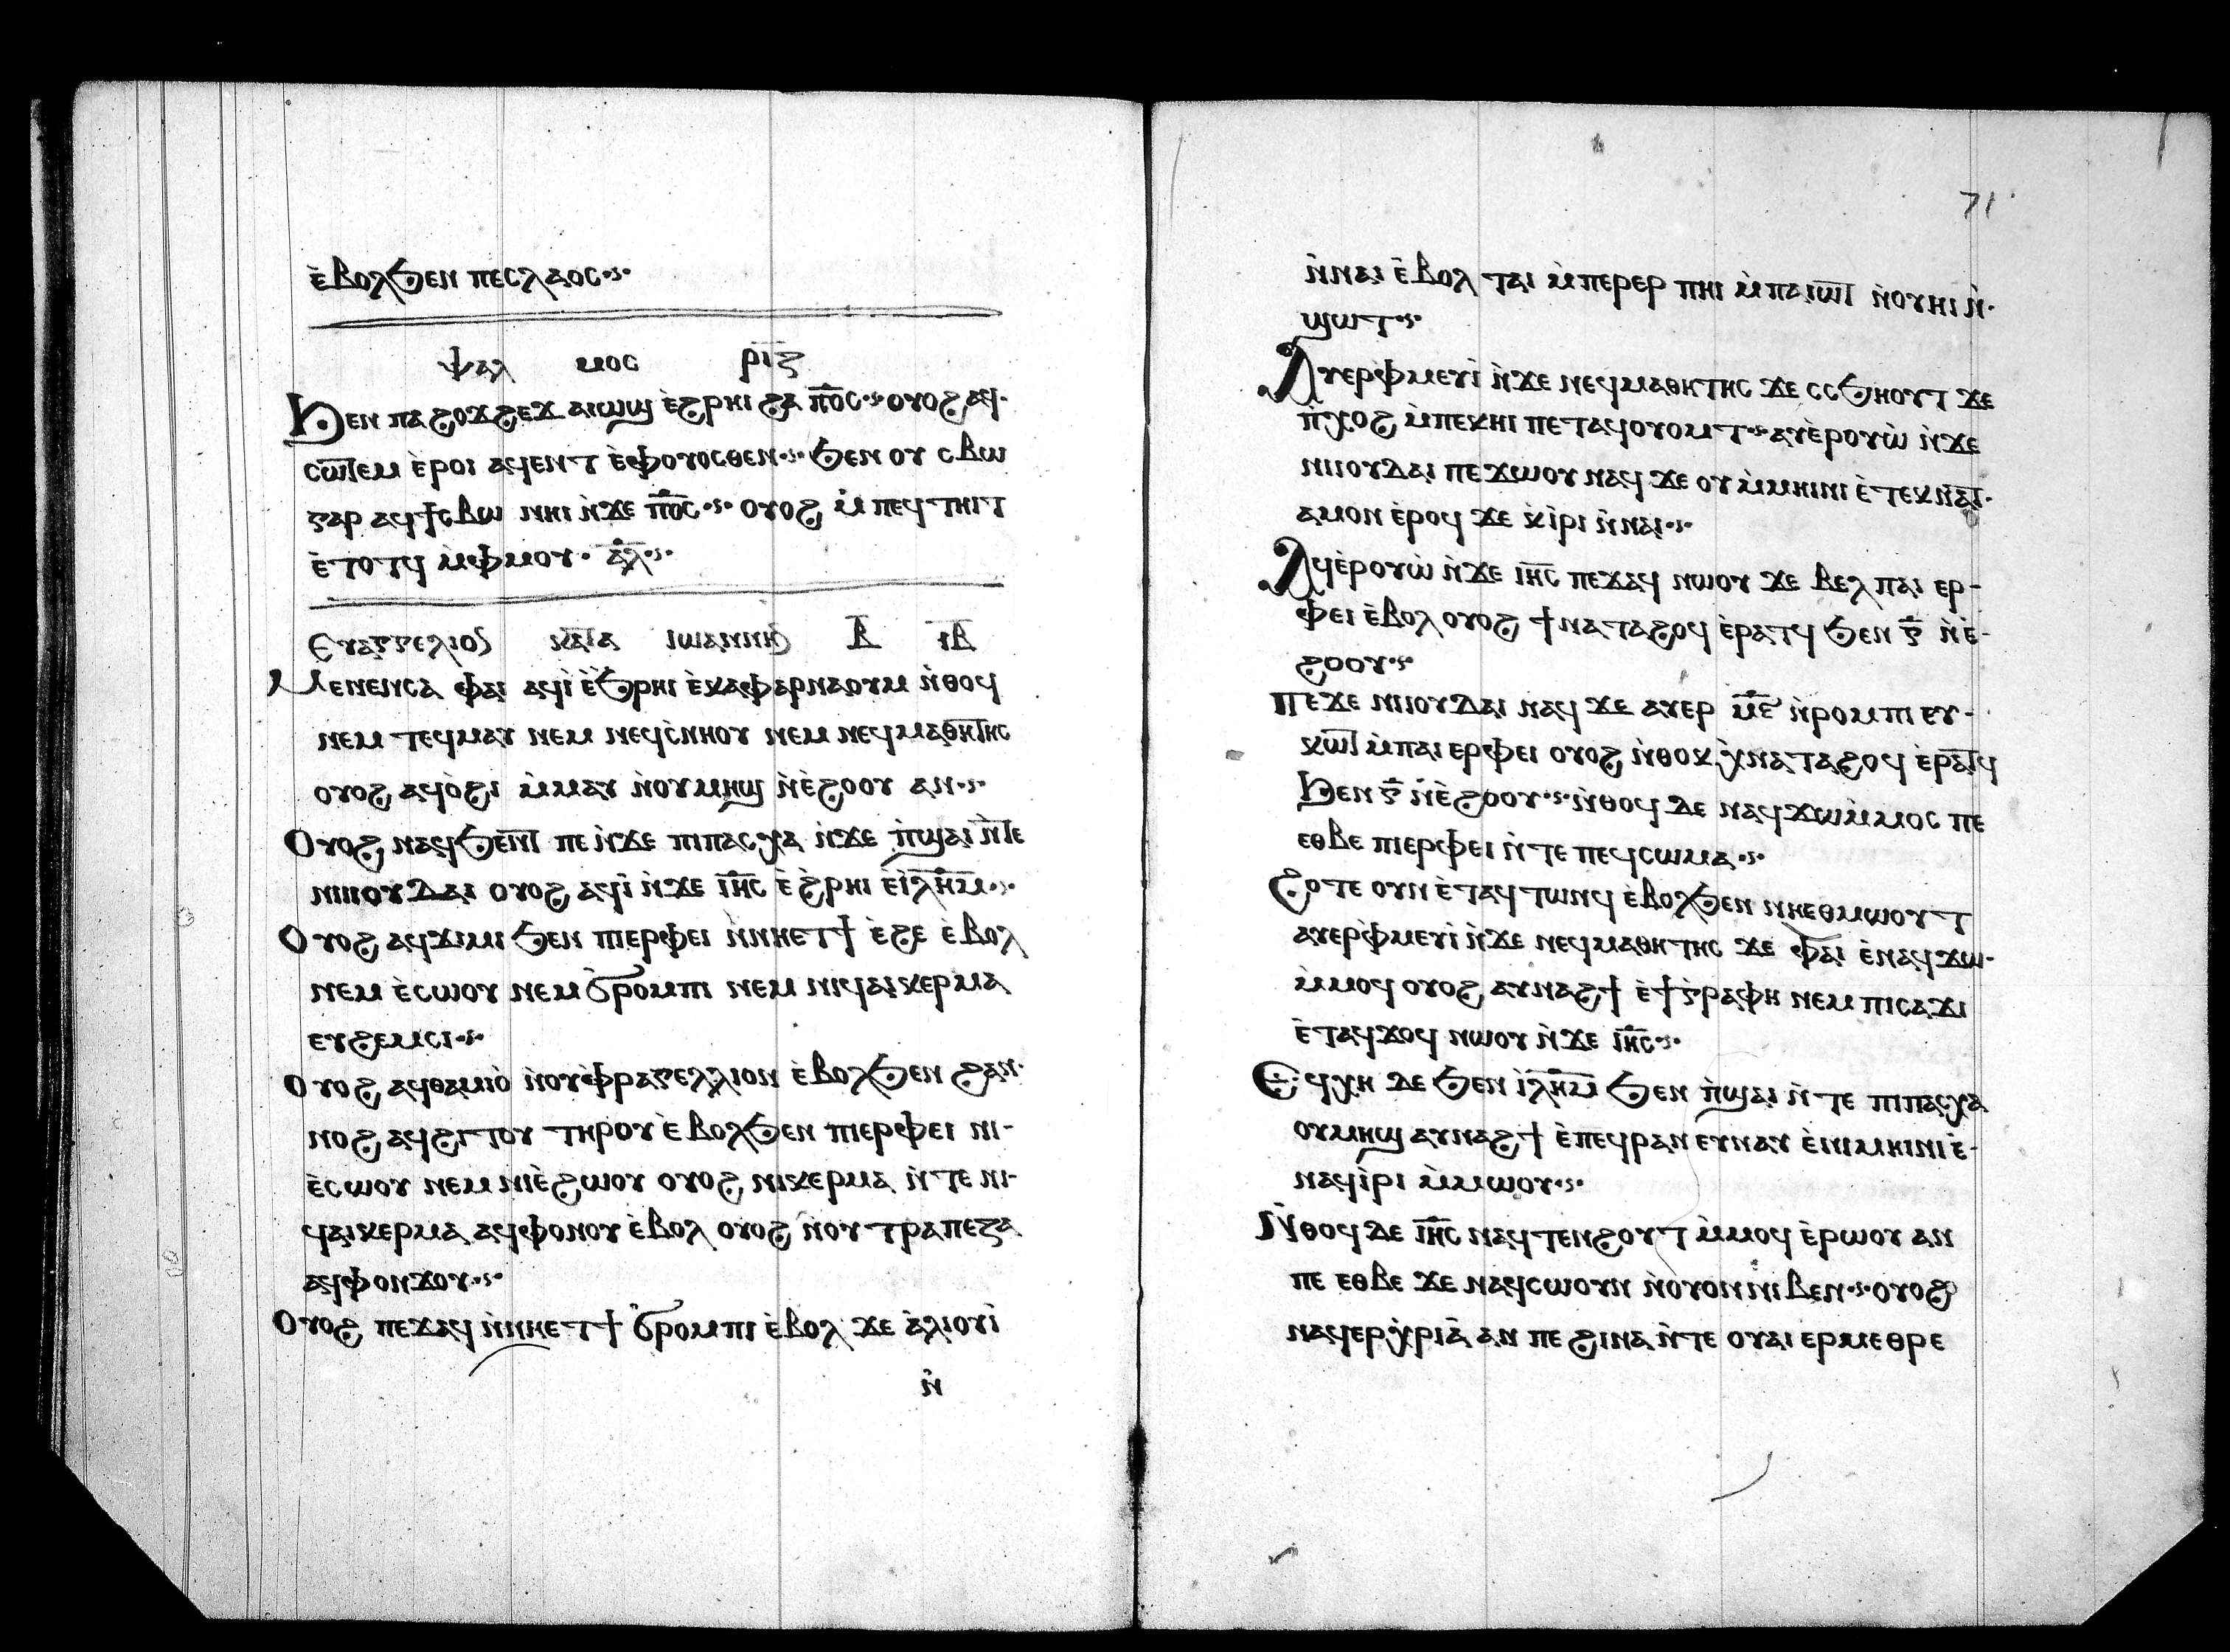 ⲉ̀ⲃⲟⲗϧⲉⲛ ⲡⲉϥⲗⲁⲟⲥ
ⲯⲁⲗ ⲙⲟⲥ ⲣⲓ̅ⲍ
Ϧⲉⲛ ⲡⲁϩⲟϫϩⲉϫ ⲁⲓⲱϣ ⲉ̀ϩⲣⲏⲓ ϩⲁ ⲡ̅ⲟ̅ⲥ ⲟⲩⲟϩ ⲁϥ-
ⲥⲱⲧⲉⲙ ⲉ̀ⲣⲟⲓ ⲁϥⲉⲛⲧ ⲉ̀ⲫⲟⲩⲟⲥⲑⲉⲛ ϧⲉⲛ ⲟⲩ ⲥⲃⲱ
ⲅⲁⲣ ⲁϥϯⲥⲃⲱ ⲛⲏⲓ ⲛ̀ϫⲉ ⲡ̅ⲟ̅ⲥ ⲟⲩⲟϩ ⲙ̀ⲡⲉϥⲧⲏⲓⲧ
ⲉ̀ⲧⲟⲧϥ ⲙ̀ⲫⲙⲟⲩ ⲁ̅ⲗ̅
Ⲉⲩⲁⲅⲅⲉⲗⲓⲟⲥ ⲕⲁⲧⲁ ⲓⲱⲁⲛⲛⲏⲥ ⲃ̅ ⲓ̅ⲃ̅
Ⲙⲉⲛⲉⲛⲥⲁ ⲫⲁⲓ ⲁϥⲓ̀ ⲉ̀ϧⲣⲏⲓ ⲉ̀ⲕⲁⲫⲁⲣⲛⲁⲟⲩⲙ ⲛ̀ⲑⲟϥ
ⲛⲉⲙ ⲧⲉϥⲙⲁⲩ ⲛⲉⲙ ⲛⲉϥⲥⲛⲏⲟⲩ ⲛⲉⲙ ⲛⲉϥⲙⲁⲑⲏⲧⲏⲥ
ⲟⲩⲟϩ ⲁϥⲟ̀ϩⲓ ⲙ̀ⲙⲁⲩ ⲛ̀ⲟⲩⲙⲏϣ ⲛ̀ⲉ̀ϩⲟⲟⲩ ⲁⲛ
Ⲟⲩⲟϩ ⲛⲁϥϧⲉⲛⲧ ⲡⲉ ⲛ̀ϫⲉ ⲡⲓⲡⲁⲥⲭⲁ ⲛ̀ϫⲉ ⲡ̀ϣⲁⲓ ⲛ̀ⲧⲉ
ⲛⲓⲓⲟⲩⲇⲁⲓ ⲟⲩⲟϩ ⲁϥⲓ̀ ⲛ̀ϫⲉ ⲓ̅ⲏ̅ⲥ ⲉ̀ϩ̀ⲣⲏⲓ ⲉⲓ̀ⲗ̅ⲏ̅ⲙ̅
Ⲟⲩⲟϩ ⲁϥϫⲓⲙⲓ ϧⲉⲛ ⲡⲓⲉⲣⲫⲉⲓ ⲛ̀ⲛⲏⲉⲧϯ ⲉ̀ϩⲉ ⲉ̀ⲃⲟⲗ
ⲛⲉⲙ ⲉ̀ⲥⲱⲟⲩ ⲛⲉⲙ ϭⲣⲟⲙⲡⲓ ⲛⲉⲙ ⲛⲓϥⲁⲓⲕⲉⲣⲙⲁ
ⲉⲩϩⲉⲙⲥⲓ
Ⲟⲩⲟϩ ⲁϥⲑⲁⲙⲓⲟ̀ ⲛ̀ⲟⲩⲫⲣⲁⲅⲉⲗⲗⲓⲟⲛ ⲉ̀ⲃⲟⲗϧⲉⲛ ϩⲁⲛ-
ⲛⲟϩ ⲁϥϩⲓⲧⲟⲩ ⲧⲏⲣⲟⲩ ⲉ̀ⲃⲟⲗϧⲉⲛ ⲡⲓⲉⲣⲫⲉⲓ ⲛⲓ-
ⲉ̀ⲥⲱⲟⲩ ⲛⲉⲙ ⲛⲓⲉ̀ϩⲱⲟⲩ ⲟⲩⲟϩ ⲛⲓⲕⲉⲣⲙⲁ ⲛ̀ⲧⲉ ⲛⲓ-
ϥⲁⲓⲕⲉⲣⲙⲁ ⲁϥⲫⲟⲛⲟⲩ ⲉ̀ⲃⲟⲗ ⲟⲩⲟϩ ⲛⲟⲩⲧⲣⲁⲡⲉⲍⲁ
ⲁϥⲫⲟⲛϫⲟⲩ
Ⲟⲩⲟϩ ⲡⲉϫⲁϥ ⲛ̀ⲛⲏⲉⲧϯ ϭⲣⲟⲙⲡⲓ ⲉ̀ⲃⲟⲗ ϫⲉ ⲁ̀ⲗⲓⲟⲩⲓ̀
ⲛ̀
71
ⲛ̀ⲛⲁⲓ ⲉ̀ⲃⲟⲗ ⲧⲁⲓ ⲙ̀ⲡⲉⲣⲉⲣ ⲡⲏⲓ ⲙ̀ⲡⲁⲓⲱⲧ ⲛ̀ⲟⲩⲏⲓ ⲛ̀-
ϣⲱⲧ
Ⲁⲩⲉⲣⲫⲙⲉⲩⲓ̀ ⲛ̀ϫⲉ ⲛⲉϥⲙⲁⲑⲏⲧⲏⲥ ϫⲉ ⲥⲥϧⲏⲟⲩⲧ ϫⲉ
ⲡ̀ⲭⲟϩ ⲙ̀ⲡⲉⲕⲏⲓ ⲡⲉⲧⲁϥⲟⲩⲟⲙⲧ ⲁⲩⲉ̀ⲣⲟⲩⲱ̀ ⲛ̀ϫⲉ
ⲛⲓⲓⲟⲩⲇⲁⲓ ⲡⲉϫⲱⲟⲩ ⲛⲁϥ ϫⲉ ⲟⲩ ⲙ̀ⲙⲏⲓⲛⲓ ⲉ̀ⲧⲉⲕⲛⲁⲧ-
ⲁⲙⲟⲛ ⲉ̀ⲣⲟϥ ϫⲉ ⲕ̀ⲓ̀ⲣⲓ ⲛ̀ⲛⲁⲓ
Ⲁϥⲉ̀ⲣⲟⲩⲱ̀ ⲛ̀ϫⲉ ⲓ̅ⲏ̅ⲥ ⲡⲉϫⲁϥ ⲛⲱⲟⲩ ϫⲉ ⲃⲉⲗ ⲡⲁⲓ ⲉⲣ-
ⲫⲉⲓ ⲉ̀ⲃⲟⲗ ⲟⲩⲟϩ ϯⲛⲁⲧⲁϩⲟϥ ⲉ̀ⲣⲁⲧϥ ϧⲉⲛ ⲅ̅ ⲛ̀ⲉ̀-
ϩⲟⲟⲩ
Ⲡⲉϫⲉ ⲛⲓⲓⲟⲩⲇⲁⲓ ⲛⲁϥ ϫⲉ ⲁⲩⲉⲣ ⲙ̅ⲋ̅ ⲛ̀ⲣⲟⲙⲡⲓ ⲉⲩ-
ⲕⲱⲧ ⲙ̀ⲡⲁⲓ ⲉⲣⲫⲉⲓ ⲟⲩⲟϩ ⲛ̀ⲑⲟⲕ ⲭ̀ⲛⲁⲧⲁϩⲟϥ ⲉ̀ⲣⲁⲧϥ
Ϧⲉⲛ ⲅ̅ ⲛ̀ⲉ̀ϩⲟⲟⲩ ⲛ̀ⲑⲟϥ ⲇⲉ ⲛⲁϥϫⲱⲙ̀ⲙⲟⲥ ⲡⲉ
ⲉⲑⲃⲉ ⲡⲓⲉⲣⲫⲉⲓ ⲛ̀ⲧⲉ ⲡⲉϥⲥⲱⲙⲁ
Ϩⲟⲧⲉ ⲟⲩⲛ ⲉ̀ⲧⲁϥⲧⲱⲛϥ ⲉ̀ⲃⲟⲗϧⲉⲛ ⲛⲏⲉⲑⲙⲱⲟⲩⲧ
ⲁⲩⲉⲣⲫ̀ⲙⲉⲩⲓ̀ ⲛ̀ϫⲉ ⲛⲉϥⲙⲁⲑⲏⲧⲏⲥ ϫⲉ ⲫⲁⲓ ⲉ̀ⲛⲁϥϫⲱ-
ⲙ̀ⲙⲟϥ ⲟⲩⲟϩ ⲁⲩⲛⲁϩϯ ⲉ̀ϯⲅ̀ⲣⲁⲫⲏ ⲛⲉⲙ ⲡⲓⲥⲁϫⲓ
ⲉ̀ⲧⲁϥϫⲟϥ ⲛⲱⲟⲩ ⲛ̀ϫⲉ ⲓ̅ⲏ̅ⲥ
Ⲉϥⲭⲏ ⲇⲉ ϧⲉⲛ ⲓ̀ⲗ̅ⲏ̅ⲙ̅ ϧⲉⲛ ⲡ̀ϣⲁⲓ ⲛ̀ⲧⲉ ⲡⲓⲡⲁⲥⲭⲁ
ⲟⲩⲙⲏϣ ⲁⲩⲛⲁϩϯ ⲉ̀ⲡⲉϥⲣⲁⲛ ⲉⲩⲛⲁⲩ ⲉ̀ⲛⲓⲙⲏⲓⲛⲓ ⲉ̀-
ⲛⲁϥⲓ̀ⲣⲓ ⲙ̀ⲙⲱⲟⲩ
Ⲛ̀ⲑⲟϥ ⲇⲉ ⲓ̅ⲏ̅ⲥ ⲛⲁϥⲧⲉⲛϩⲟⲩⲧ ⲙ̀ⲙⲟϥ ⲉ̀ⲣⲱⲟⲩ ⲁⲛ
ⲡⲉ ⲉⲑⲃⲉ ϫⲉ ⲛⲁϥⲥⲱⲟⲩⲛ ⲛ̀ⲟⲩⲟⲛ ⲛⲓⲃⲉⲛ ⲟⲩⲟϩ
ⲛⲁϥⲉⲣⲭ̀ⲣⲓⲁ̀ ⲁⲛ ⲡⲉ ϩⲓⲛⲁ ⲛ̀ⲧⲉ ⲟⲩⲁⲓ ⲉⲣⲙⲉⲑⲣⲉ